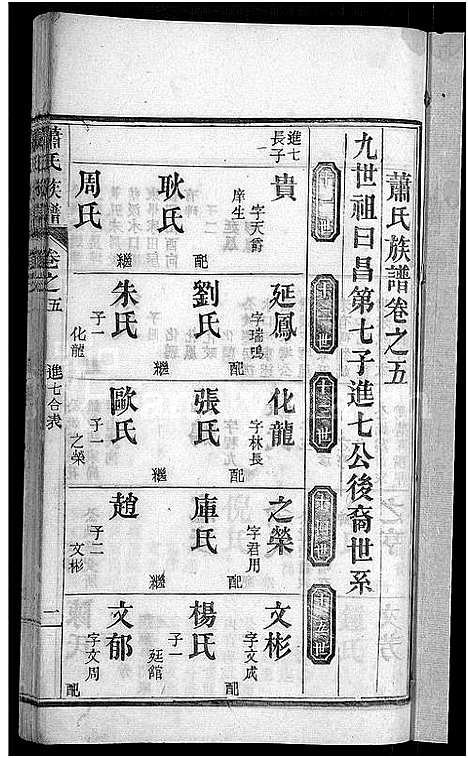 蕭氏族譜卷之五
九世祖曰昌第七子進七公後裔世系
十一世
十二世
十三世
十四世
十五世
進七長子
貴
字天爵
庠生
配
耿氏
繼
周氏
延鳳
配
劉氏
繼
朱氏
子一
化龍
化龍
字林長
配
張氏
繼
歐氏
子一
之榮
之榮
字君用
配
庫氏
繼
趙
子二
文彬
文彬
字文成
配
楊氏
子一
廷館
文郁
字文周
配
蕭氏族譜
卷之五
進七合表
一